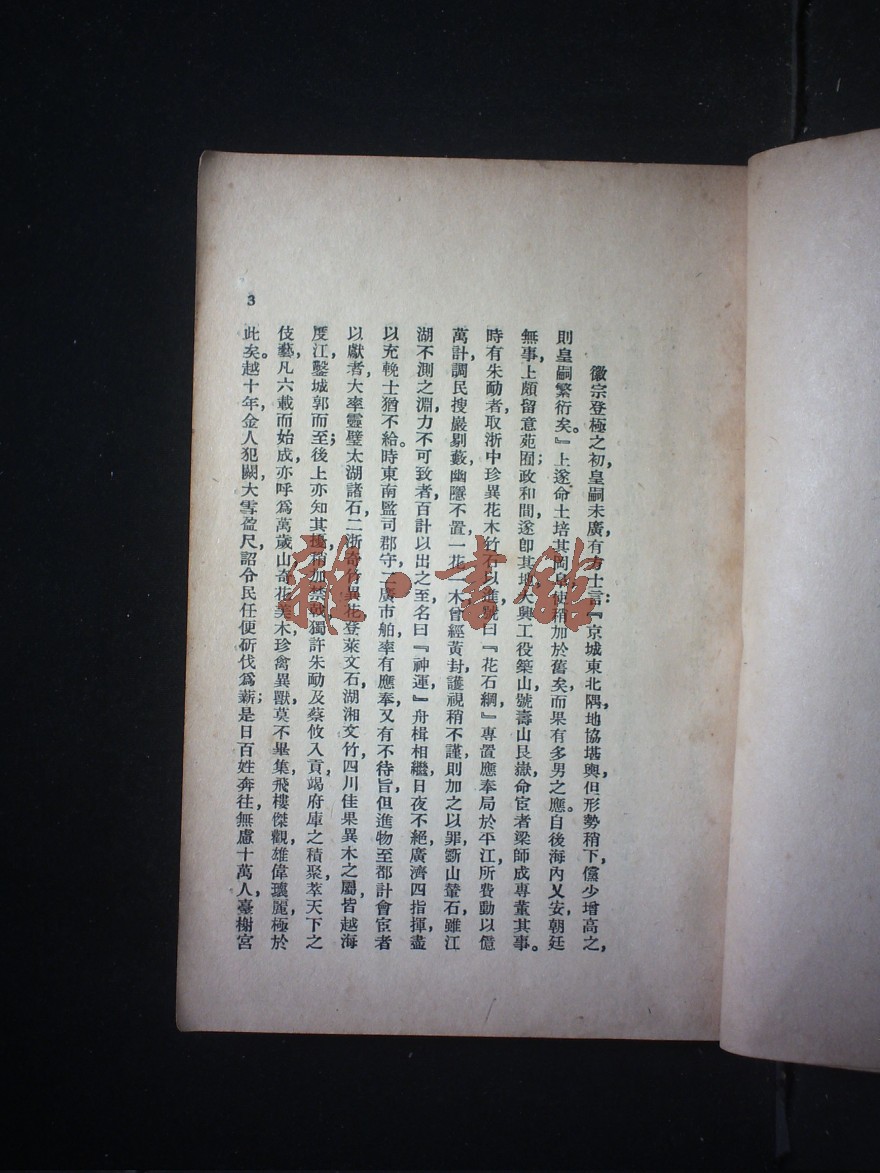 徽宗登極之初，皇嗣未廣，有方士言：『京城東北隅，地協堪輿，但形勢稍下，儻少增高之，
則皇嗣繁衍矣。』上遂命土培其岡阜，使稍加於舊矣，而果有多男之應。自後海內乂安，朝廷
無事，上頗留意苑囿；政和間，遂卽其地，大興工役築山，號壽山艮嶽，命宦者梁師成專董其事。
時有朱勔者，取浙中珍異花木竹石以進，號曰『花石綱』，專置應奉局於平江，所費動以億
萬計，調民搜巖剔藪，幽隱不置，一花一木，曾經黃封，護視稍不謹，則加之以罪，斲山輦石，雖江
湖不測之淵，力不可致者，百計以出之，至名曰『神運』，舟楫相繼，日夜不絕，廣濟四指揮，盡
以充輓士，猶不給。時東南監司、郡守、二廣市舶，率有應奉，又有不待旨，但進物至都，計會宦者
以獻者，大率靈璧太湖諸石，二浙奇竹異花，登萊文石，湖湘文竹，四川佳果異木之屬，皆越海
度江，鑿城郭而至；後上亦知其擾，稍加禁戢，獨許朱勔及蔡攸入貢，竭府庫之積聚，萃天下之
伎藝，凡六載而始成，亦呼爲萬歲山，奇花美木，珍禽異獸，莫不畢集，飛樓傑觀，雄偉瓌麗，極於
此矣。越十年，金人犯闕，大雪盈尺，詔令民任便斫伐爲薪；是日百姓奔往，無慮十萬人，臺榭宮
3
雜·書館